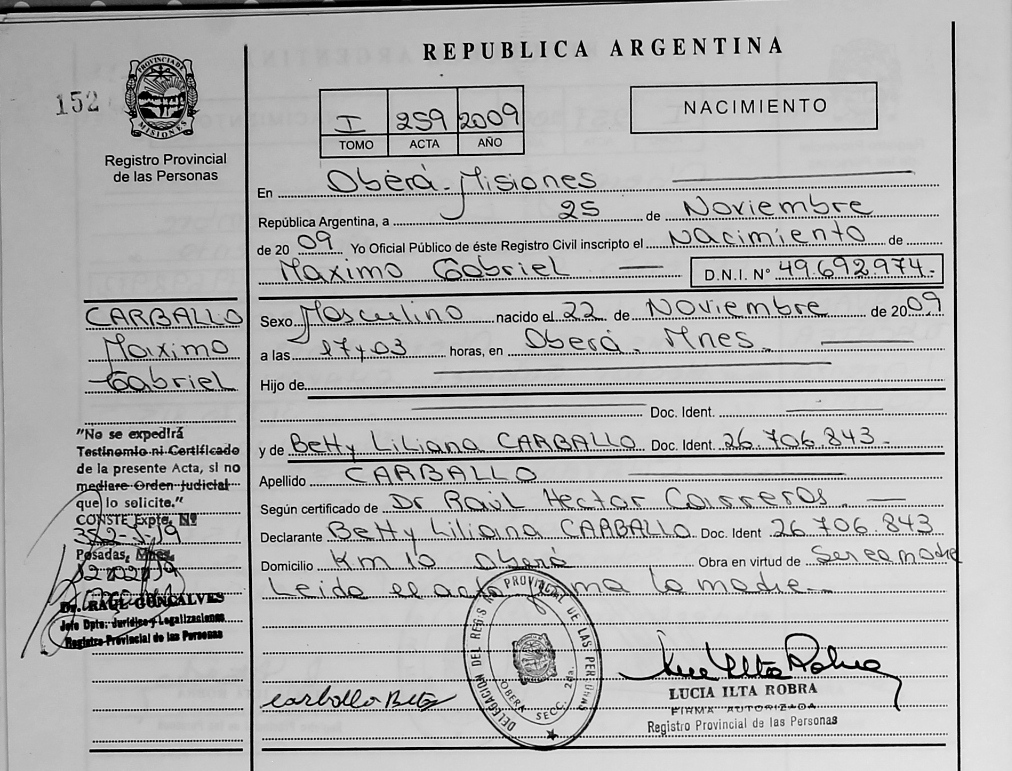 REPUBLICA ARGENTINA
152
PROVINCIA DE
MISIONES
Registro Provincial
de las Personas
I 259 2009
TOMO ACTA AÑO
NACIMIENTO
En Oberá - Misiones
República Argentina, a 25 de Noviembre
de 20 09 Yo Oficial Público de éste Registro Civil inscripto el Nacimiento de
Maximo Gabriel D.N.I. Nº 49.692.974.-
Sexo Masculino nacido el 22 de Noviembre de 2009
a las 17 y 03 horas, en Oberá. Mnes.
Hijo de
Doc. Ident.
y de Betty Liliana CARBALLO Doc. Ident. 26.706.843.-
Apellido CARBALLO
Según certificado de Dr Raúl Hector Carreros
Declarante Betty Liliana CARBALLO. Doc. Ident 26.706.843
Domicilio Km 10 Oberá Obra en virtud de Ser la madre
Leida el acta firma la madre.-
CARBALLO
Maximo
Gabriel
"No se expedirá
Testinomio ni Certificado
de la presente Acta, si no
mediare Orden Judicial
que lo solicite."
CONSTE Expte. Nº
Posadas, Mnes.
Dr. RAUL GONCALVES
Jefe Dpto. Jurídico y Legalizaciones
Registro Provincial de las Personas
DELEGACION DEL REGIS PROVINCIAL DE LAS PERSONAS
OBERA SECC. 2da.
Carballo Betty
LUCIA ILTA ROBRA
FIRMA AUTORIZADA
Registro Provincial de las Personas